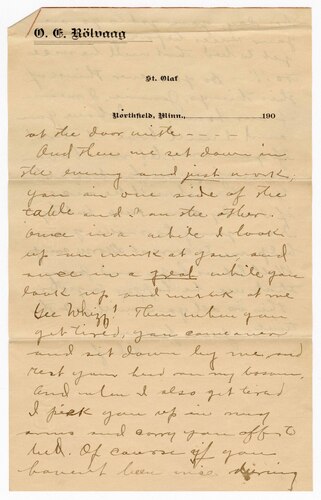 O. E. Rölvaag
St. Olaf
Northfield, Minn., 190
at the door with - - - -
And then we set down in
the evening and just work;
you on one side of the
table and I on the other.
Once in a while I look
up and wink at you, and
once in a great while you
look up and wink at me
Gee Whizz! Then when you
get tired, you come over
and set down by me, and
rest your head on my bosom.
And when I also get tired
I pick you up in my
arms and carry you off to
bed. Of course if you
haven't been nice during